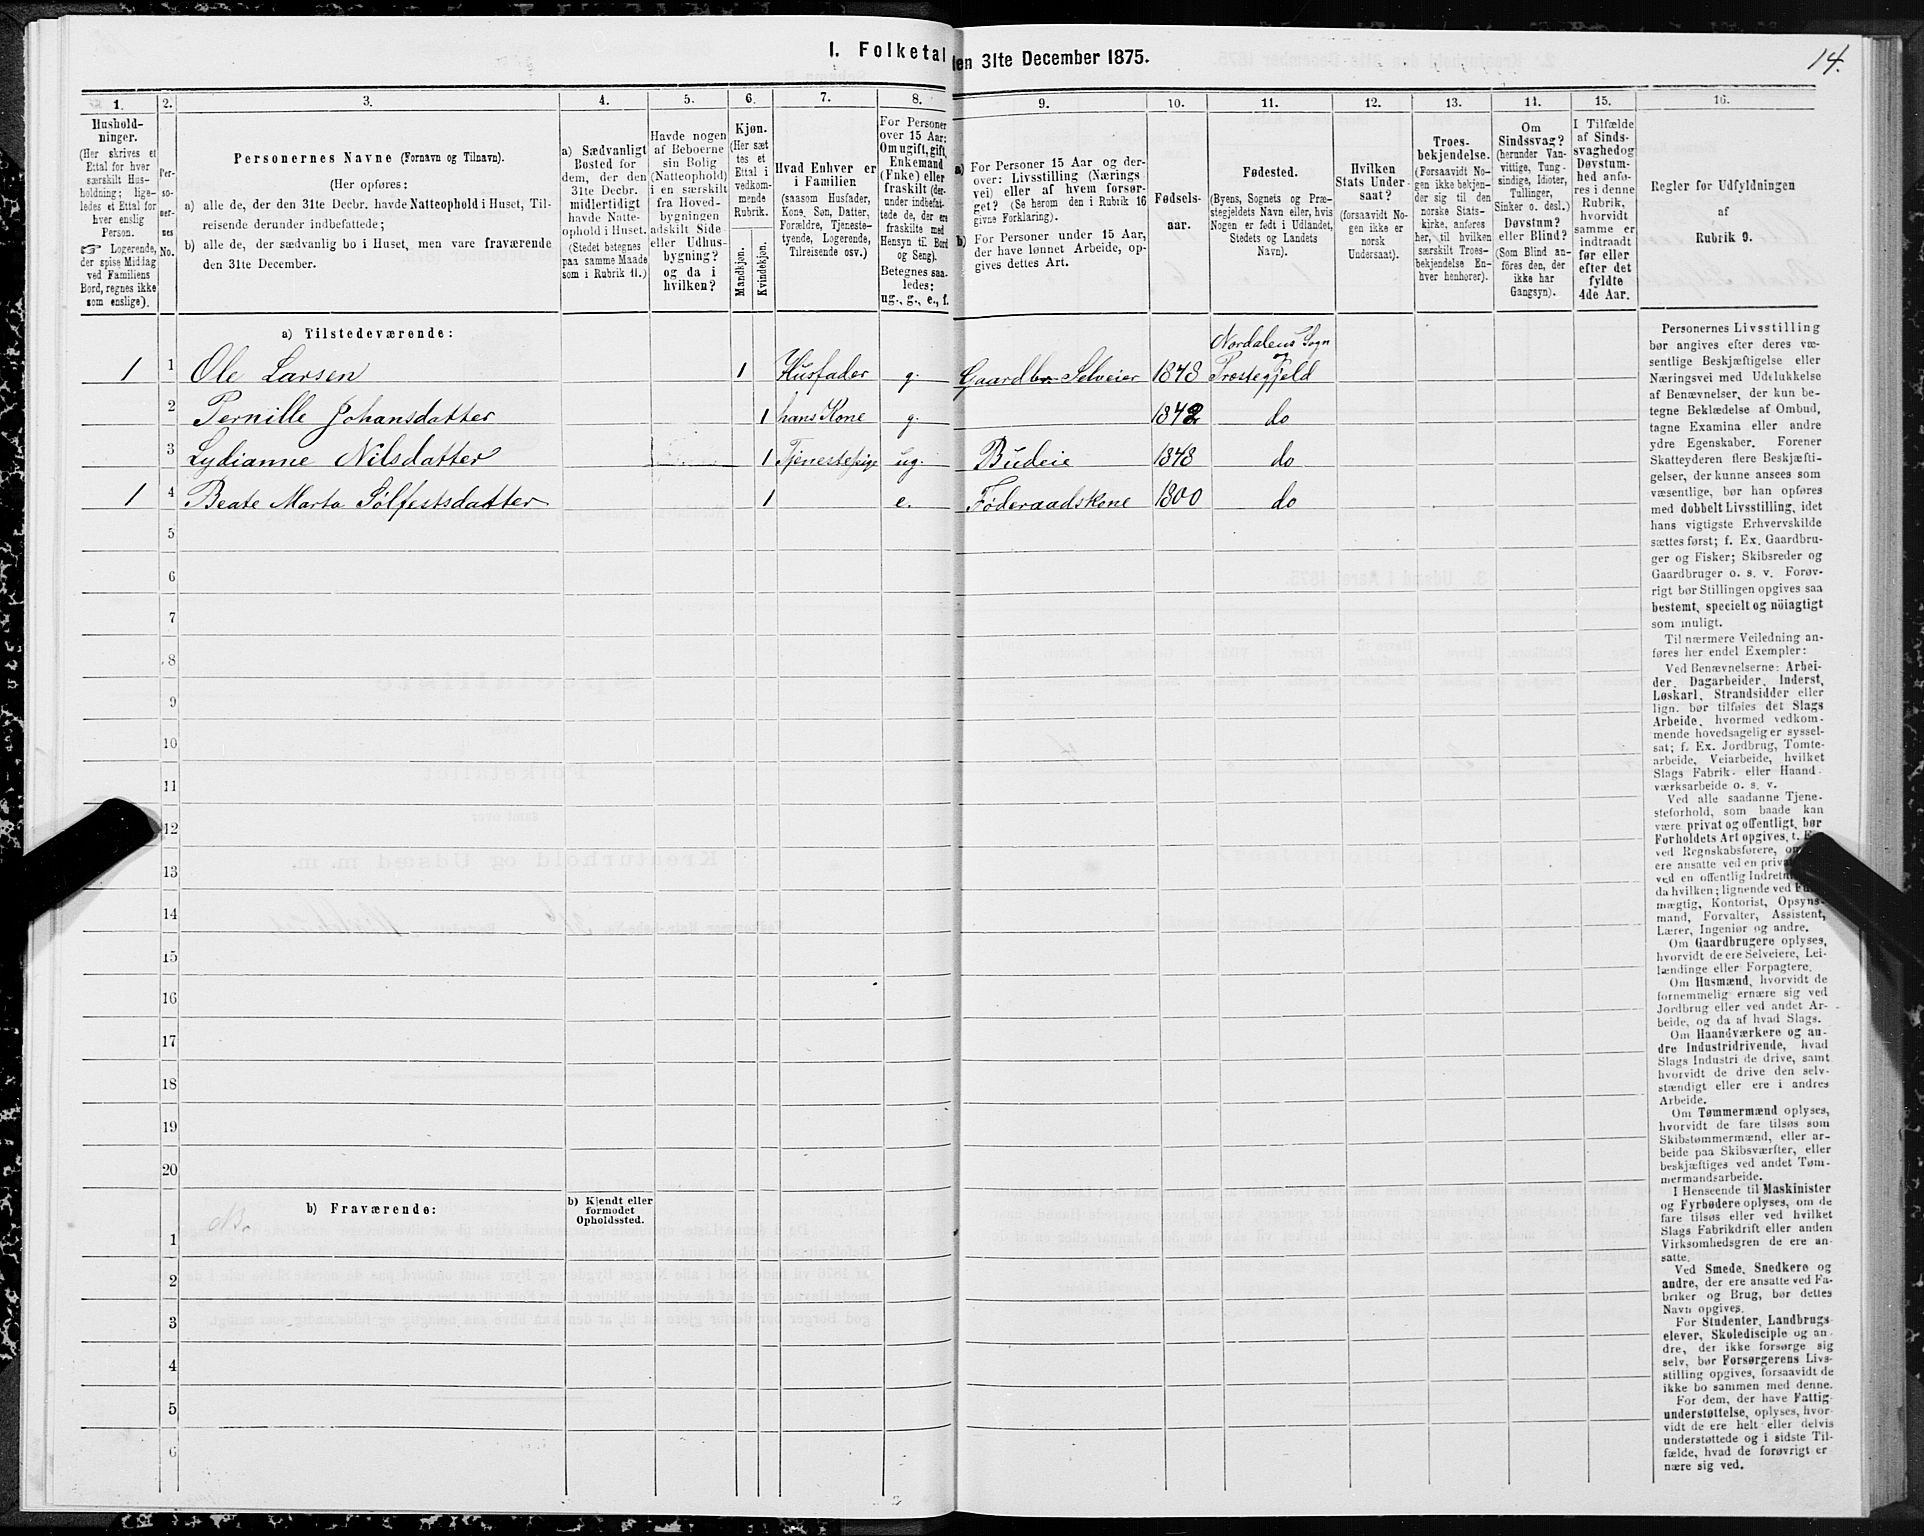 I. Folketal den 31te December 1875.
14.
1.
Hushold-
ninger.
(Her skrives et
Ettal for hver
særskilt Hus-
holdning; lige-
ledes et Ettal for
hver enslig
Person.
☞ Logerende,
der spise Middag
ved Familiens
Bord, regnes ikke
som enslige).
2.
Per-
so-
ner-
nes
No.
3.
Personernes Navne (Fornavn og Tilnavn).
(Her opføres:
a) alle de, der den 31te Decbr. havde Natteophold i Huset, Til-
reisende derunder indbefattede;
b) alle de, der sædvanlig bo i Huset, men vare fraværende
den 31te December.
4.
a) Sædvanligt
Bosted for
dem, der den
31te Decbr.
midlertidigt
havde Natte-
ophold i Huset.
(Stedet betegnes
paa samme Maade
som i Rubrik 11.)
5.
Havde nogen
af Beboerne
sin Bolig
(Natteophold)
i en særskilt
fra Hoved-
bygningen
adskilt Side-
eller Udhus-
bygning?
og da i
hvilken?
6.
Kjøn.
(Her sæt
tes et
Ettal i
vedkom-
mende
Rubrik.
Mandkjøn.
Kvindekjøn.
7.
Hvad Enhver er
i Familien
(saasom Husfader,
Kone, Søn, Datter,
Forældre, Tjeneste-
tyende, Logerende,
Tilreisende osv.)
8.
For Personer
over 15 Aar:
Om ugift, gift,
Enkemand
(Enke) eller
fraskilt (der-
under indbefat-
tede de, der ere
fraskilte med
Hensyn til Bord
og Seng).
Betegnes saa-
ledes:
ug., g., e., f.
9.
a) For Personer 15 Aar og der-
over: Livsstilling (Nærings
vei) eller af hvem forsør-
get? (Se herom den i Rubrik 16
givne Forklaring).
b) For Personer under 15 Aar,
der have lønnet Arbeide, op-
gives dettes Art.
10.
Fødsels-
aar.
11.
Fødested.
(Byens, Sognets og Præ-
stegjeldets Navn eller, hvis
Nogen er født i Udlandet,
Stedets og Landets
Navn).
12.
Hvilken
Stats Under-
saat?
(forsaavidt No-
gen ikke er
norsk
Undersaat).
13.
Troes-
bekjendelse.
(Forsaavidt No-
gen ikke bekjen-
der sig til den
norske Stats-
kirke, anføres
her, til hvilken
særskilt Troes-
bekjendelse En-
hver henhører).
14.
Om
Sindssvag?
(herunder Van-
vittige, Tung-
sindige, Idioter,
Tullinger,
Sinker o. desl.)
Døvstum?
eller Blind?
(Som Blind an-
føres den, der
ikke har
Gangsyn).
15.
I Tilfælde
af Sinds-
svaghed og
Døvstum-
hed anfø-
res i denne
Rubrik,
hvorvidt
samme er
indtraadt
før eller
efter det
fyldte
4de Aar.
16.
Regler for Udfyldningen
af
Rubrik 9.
a) Tilstedeværende:
Nordalens Sogn
1 1 Ole Larsen 1 Husfader g. Gaardbr Selveier 1848 og Præstegjeld
2 Pernille Johansdatter 1 hans Kone g. 1842 do
3 Lydianne Nilsdatter 1 Tjenestepige ug. Budeie 1848 do
1 4 Beate Marta Sølfestsdatter 1 e. Føderaadskone 1800 do
5
6
7
8
9
10
11
12
13
14
15
16
17
18
19
20
b) Fraværende:
b) Kjendt eller
formodet
Opholdssted.
1
2
3
4
5
6
Personernes Livsstilling
bør angives efter deres væ-
sentlige Beskjæftigelse eller
Næringsvei med Udelukkelse
af Benævnelser, der kun be-
tegne Beklædelse af Ombud,
tagne Examina eller andre
ydre Egenskaber. Forener
Skatteyderen flere Beskjæfti-
gelser, der kunne ansees som
væsentlige, bør han opføres
med dobbelt Livsstilling, idet
hans vigtigste Erhvervskilde
sættes først; f. Ex. Gaardbru-
ger og Fisker; Skibsreder og
Gaardbruger o. s. v. Forøv-
rigt bør Stillingen opgives saa
bestemt, specielt og nöiagtigt
som muligt.
Til nærmere Veiledning an-
føres her endel Exempler:
Ved Benævnelserne: Arbei-
der, Dagarbeider, Inderst,
Løskarl, Strandsidder eller
lign. bør tilføies det Slags
Arbeide, hvormed vedkom-
mende hovedsagelig er syssel-
sat; f. Ex. Jordbrug, Tomte-
arbeide, Veiarbeide, hvilket
Slags Fabrik- eller Haand-
værksarbeide o. s. v.
Ved alle saadanne Tjene-
steforhold, som baade kan
være privat og offentligt, bør
Forholdets Art opgives, t.
ved Regnskabsførere,
ere ansatte ved en
ved en offentlig
da hvilken; lignende ved
mægtig, Kontorist, Opsyns-
mand, Forvalter, Assistent,
Lærer, Ingeniør og andre.
Om Gaardbrugere oplyses,
hvorvidt de ere Selveiere, Lei-
lændinge eller Forpagtere.
Om Husmænd, hvorvidt de
fornemmelig ernære sig ved
Jordbrug eller ved andet Ar-
beide, og da af hvad Slags.
Om Haandværkere og an-
dre Industridrivende, hvad
Slags Industri de drive, samt
hvorvidt de drive den selv-
stændigt eller ere i andres
Arbeide.
Om Tømmermænd oplyses,
hvorvidt de fare tilsøs som
Skibstømmermænd, eller ar-
beide paa Skibsværfter, eller
beskjæftiges ved andet Tøm-
mermandsarbeide.
I Henseende til Maskinister
og Fyrbødere oplyses, om de
fare tilsøs eller ved hvilket
Slags Fabrikdrift eller anden
Virksomhedsgren de ere an-
satte.
Ved Smede, Snedkere og
andre, der ere ansatte ved Fa-
briker og Brug, bør dettes
Navn opgives.
For Studenter, Landbrugs-
elever, Skoledisciple og an-
dre, der ikke forsørge sig
selv, bør Forsørgerens Livs-
stilling opgives, forsaavidt de
ikke bo sammen med denne.
For dem, der have Fattig-
understøttelse, oplyses, hvor-
vidt de ere helt eller delvis
understøttede og i sidste Til-
fælde, hvad de forøvrigt er-
nære sig ved.